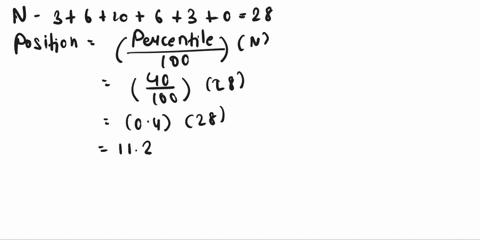 N - 3 + 6 + 10 + 6 + 3 + 0 = 28
Position = (Percentile/100) (N)
= (40/100) (28)
= (0.4) (28)
= 11.2